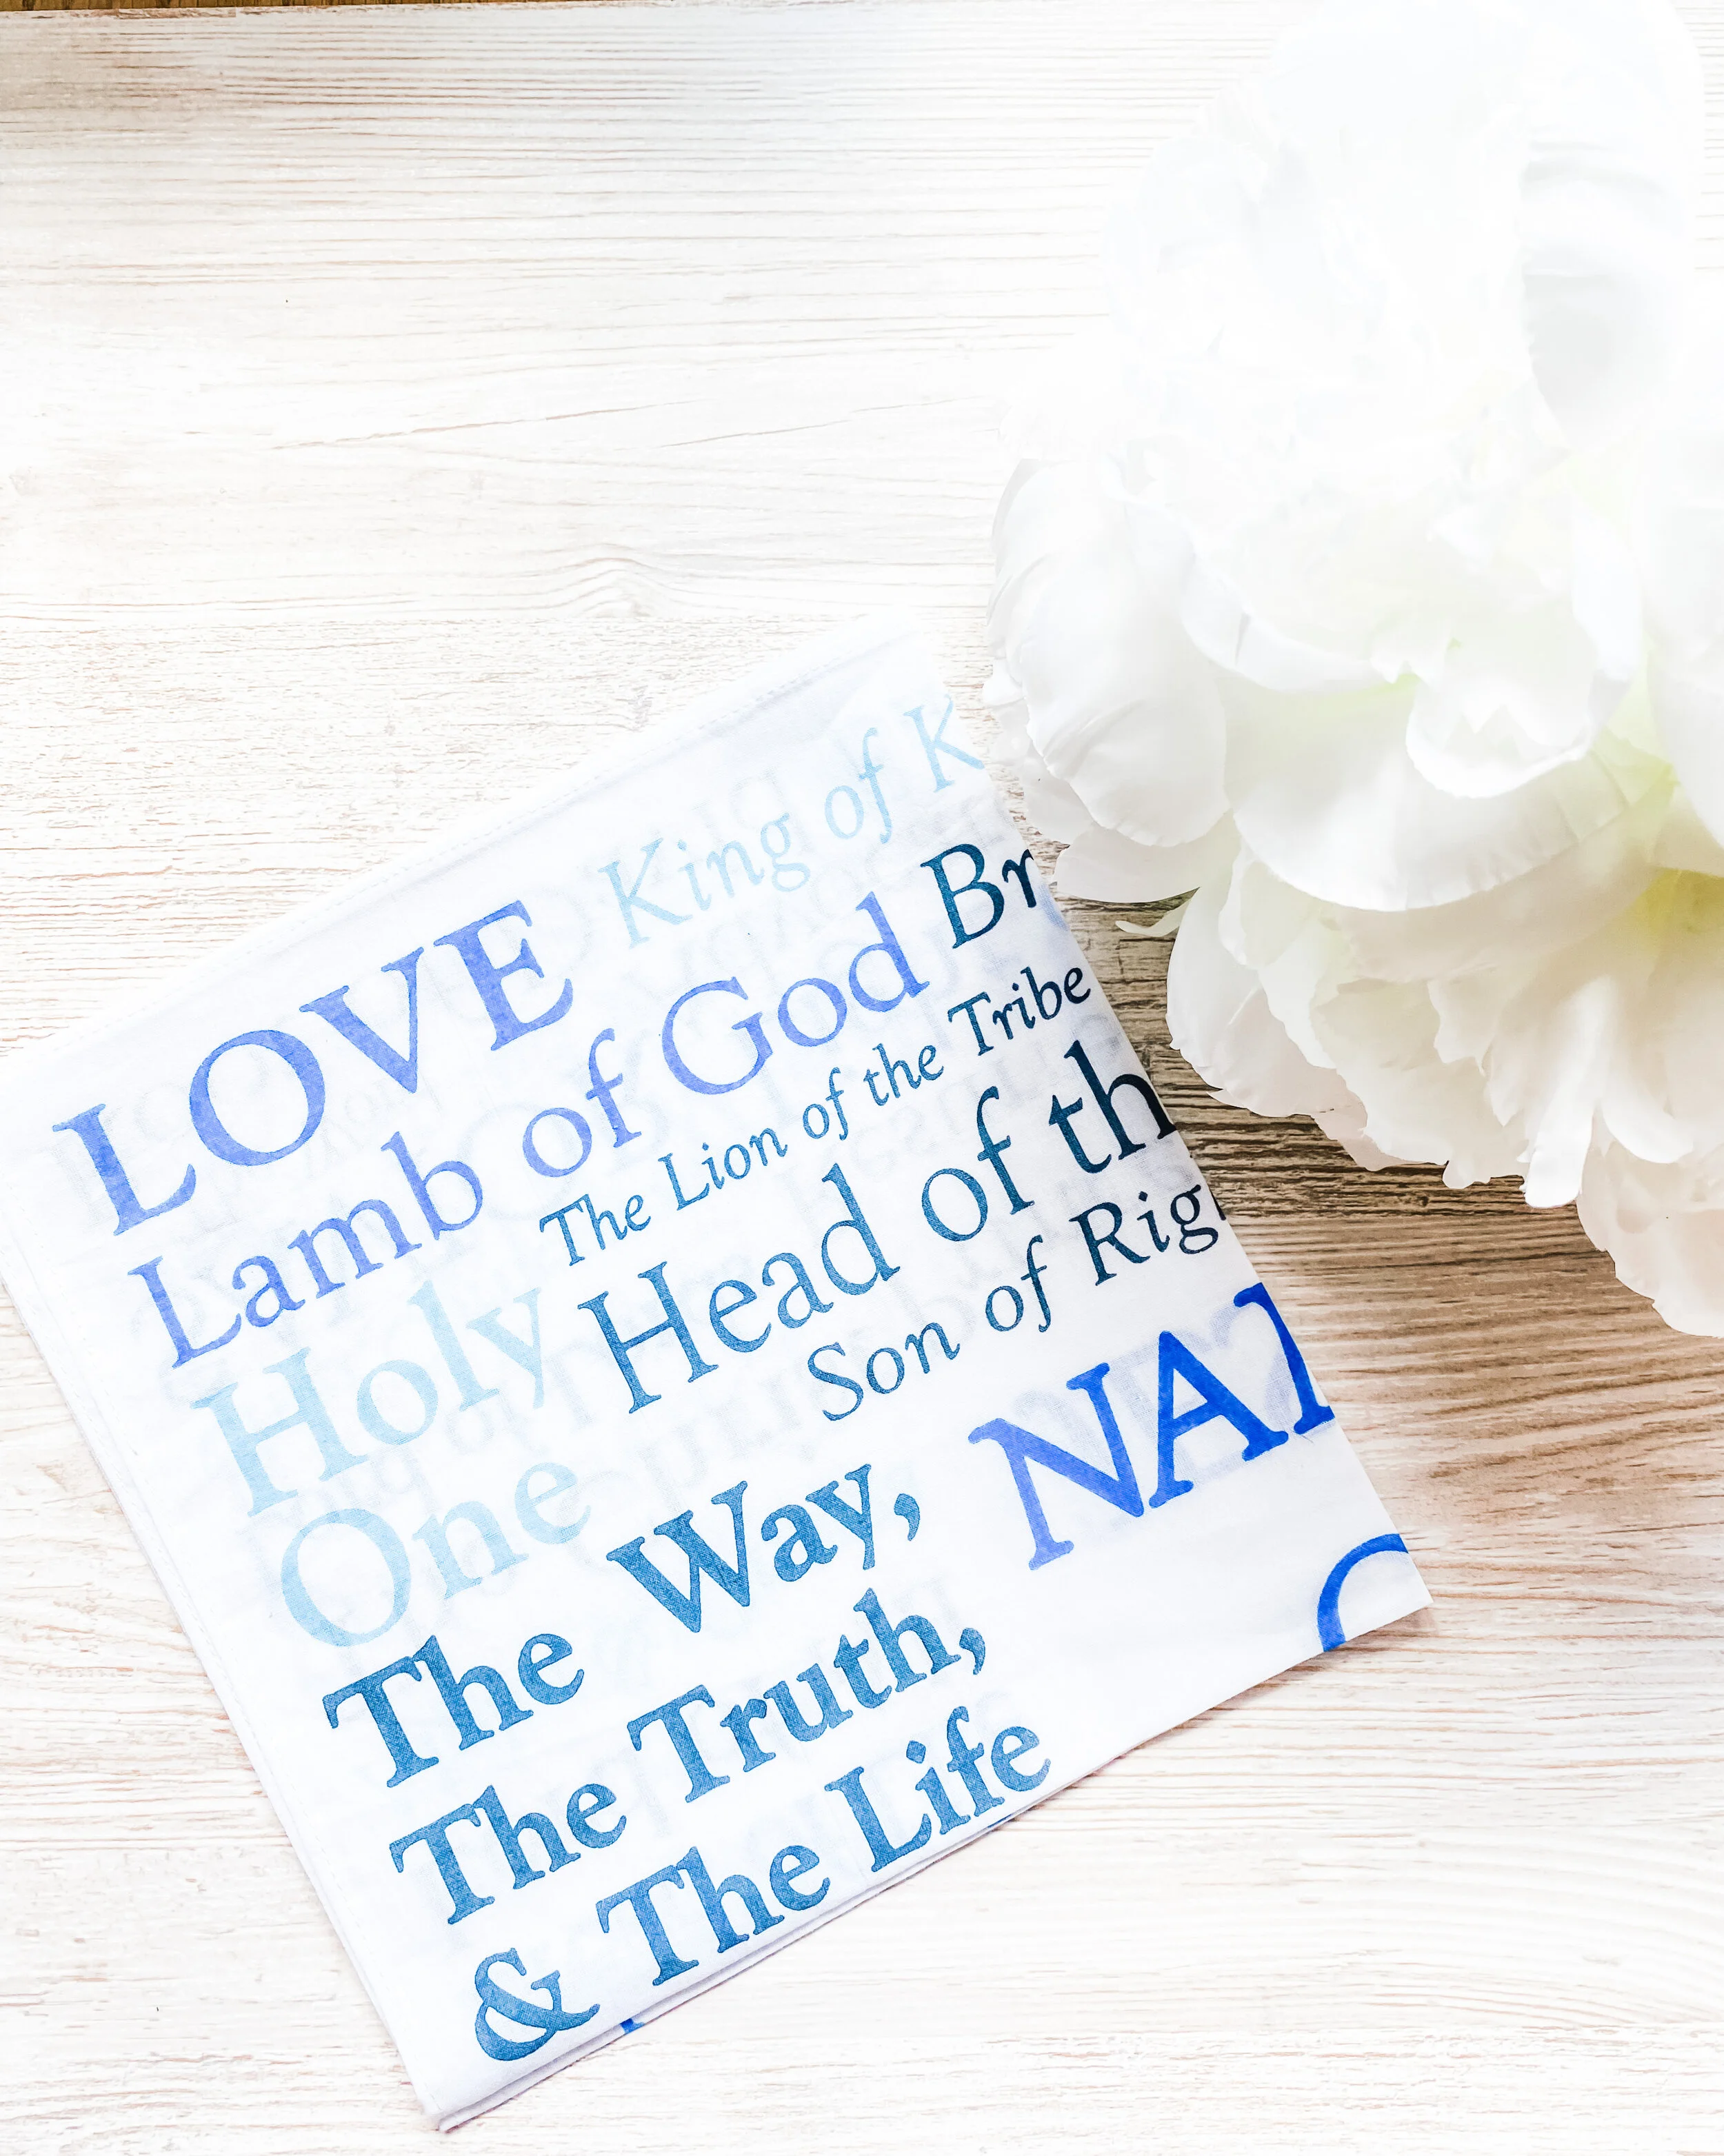 LOVE King of K
Lamb of God Br
The Lion of the Tribe
Holy Head of th
Son of Rig
One
The Way, NA
The Truth,
& The Life